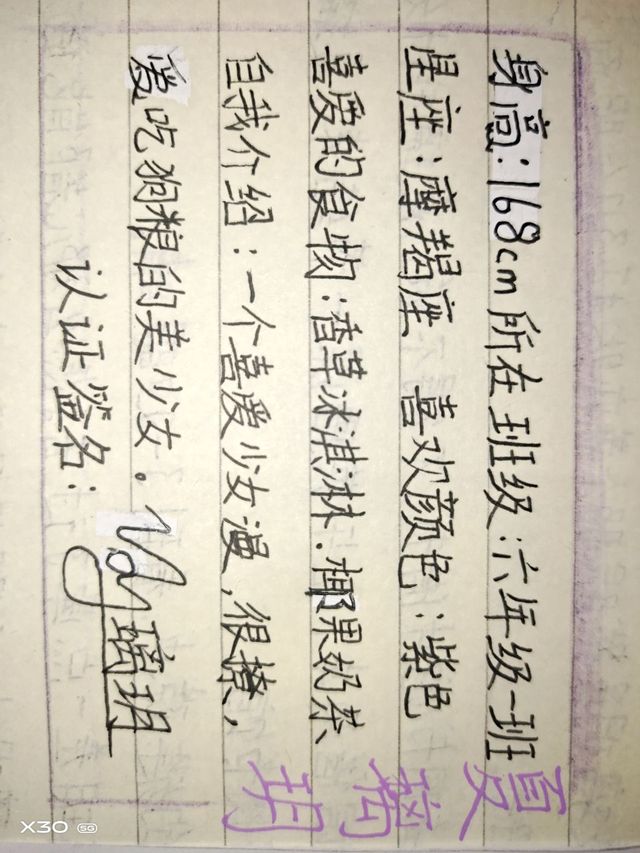 身高：168cm 所在班级：六年级一班
星座：摩羯座 喜欢颜色：紫色
喜爱的食物：香草冰淇淋．椰果奶茶
自我介绍：一个喜爱少女漫，很撩，
爱吃狗粮的美少女。
认证签名：
璃玥
夏
璃
玥
X30 5G